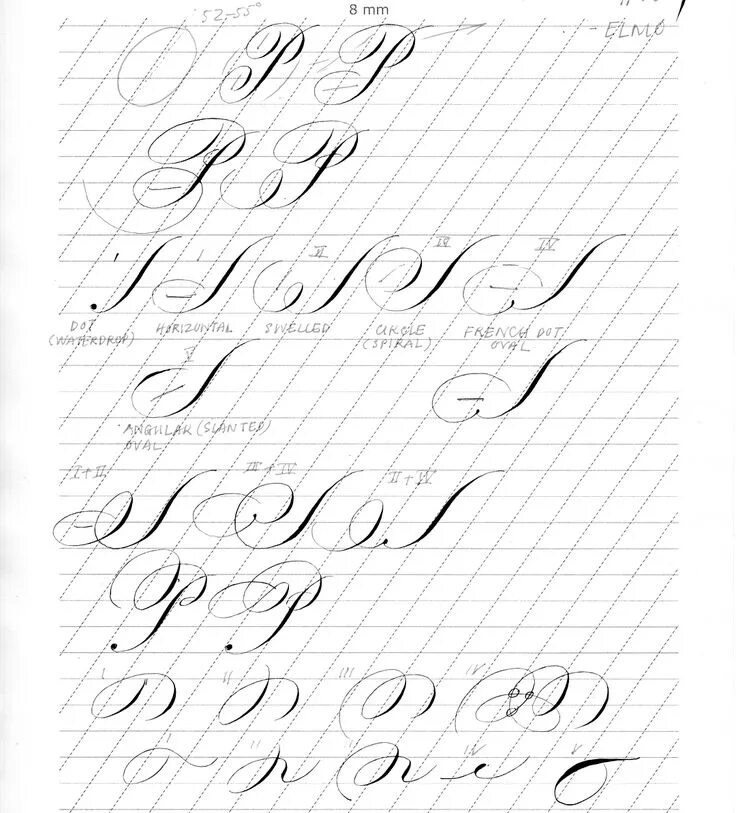 8 mm
52-55°
- ELMO
P = P
P P
I II III IV
DOT HORIZONTAL SWELLED CIRCLE FRENCH DOT
(WATERDROP) (SPIRAL) OVAL
V
ANGULAR (SLANTED)
OVAL
I + II III + IV II + IV
P P
I II III IV
I II III IV V